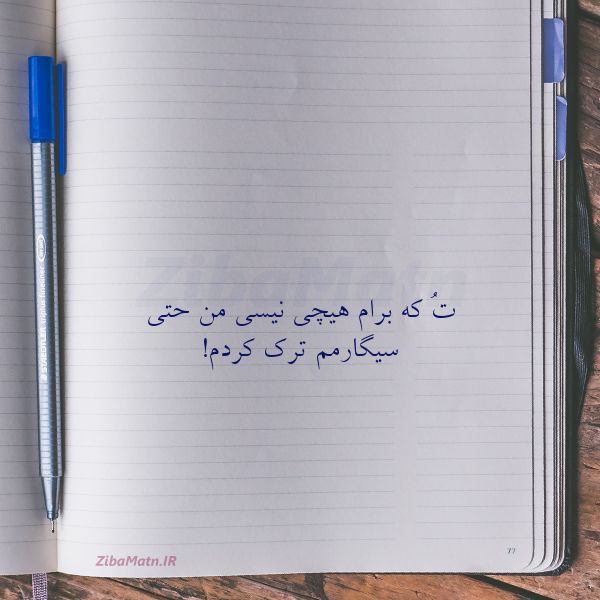 ZibaMatn
تُ که برام هیچی نیسی من حتی
سیگارمم ترک کردم!
STAEDTLER triplus fineliner
77
ZibaMatn.IR